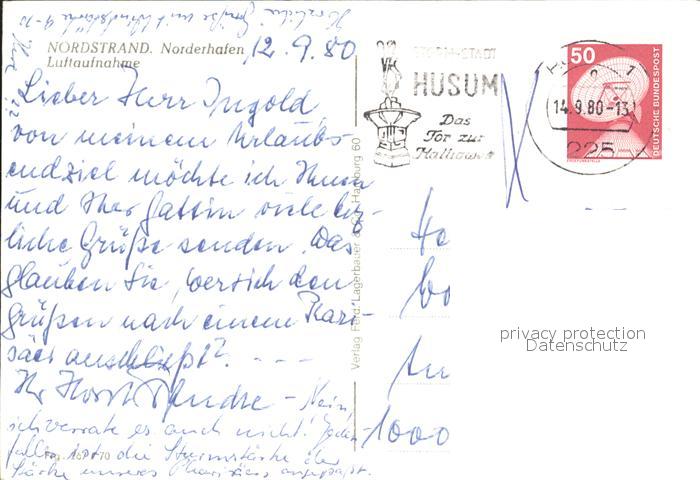 Herzliche Grüße mit Windstärke 9-10
NORDSTRAND. Norderhafen
Luftaufnahme
12.9.80
Lieber Herr Ingold,
von meinem Urlaubs-
endziel möchte ich Ihnen
und Ihrer Gattin viele herz-
liche Grüße senden. Das
glauben Sie, wer sich den
Grüßen nach einem Phari-
säer anschließt?. - - -
Ihr Horst
- Nein,
ich verrate es auch nicht! Jeden-
falls ist die Sturmstärke der
Stärke unseres Pharisäers angepaßt.
Verlag Ferd. Lagerbauer & Co., Hamburg 60
STORM-STADT
HUSUM
Das
Tor zur
Halligwelt
H
1
14.9.80-13
2251
50
DEUTSCHE BUNDESPOST
He
bo
An
1000
privacy protection
Datenschutz